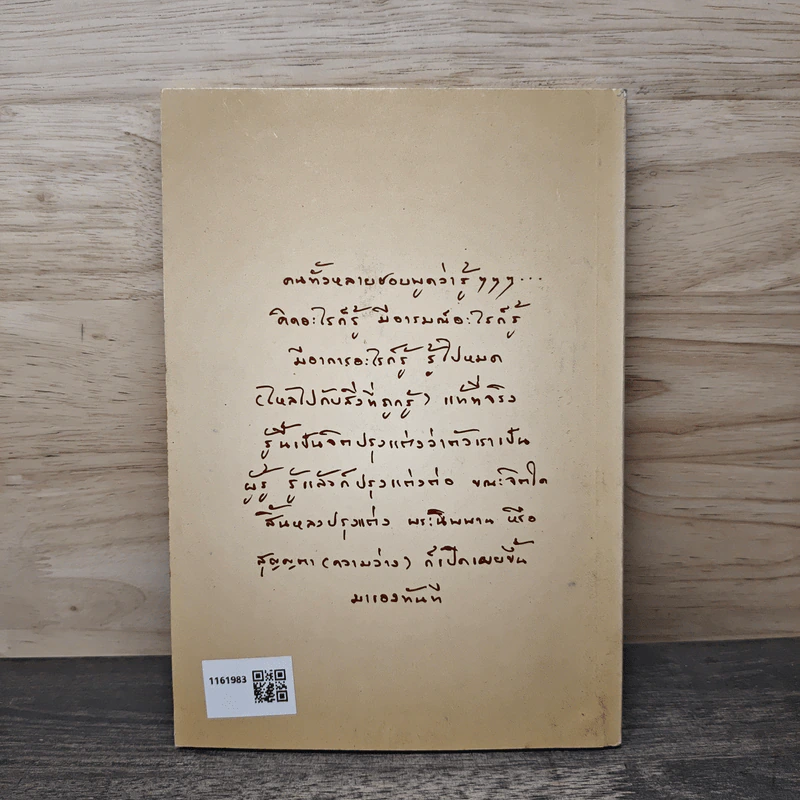 คนทั้งหลายชอบพูดว่ารู้ ๆๆๆ...
คิดอะไรก็รู้ มีอารมณ์อะไรก็รู้
มีอาการอะไรก็รู้ รู้ไปหมด
(ไหลไปกับสิ่งที่ถูกรู้) แท้ที่จริง
รู้นี้เป็นจิตปรุงแต่งว่าตัวเราเป็น
ผู้รู้ รู้แล้วก็ปรุงแต่งต่อ ขณะจิตใด
สิ้นหลงปรุงแต่ง พระนิพพาน หรือ
สุญญตา (ความว่าง) ก็เปิดเผยขึ้น
มาเองทันที
1161983